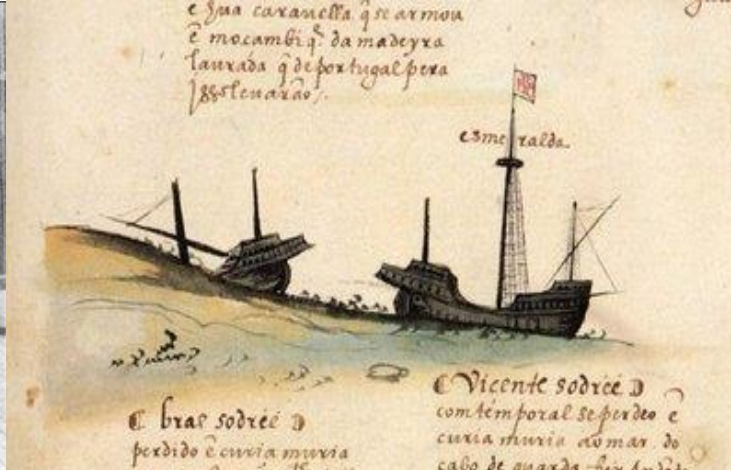 e hua caravella q̃ se armou
ẽ mocambiq̃ da madeyra
laurada q̃ de portugal pera
Isso levarão /.
esmeralda
bras sodreé
perdido ẽ curia muria
Vicente sodreé
com temporal se perdeo ẽ
curia muria ao mar do
cabo de guarda